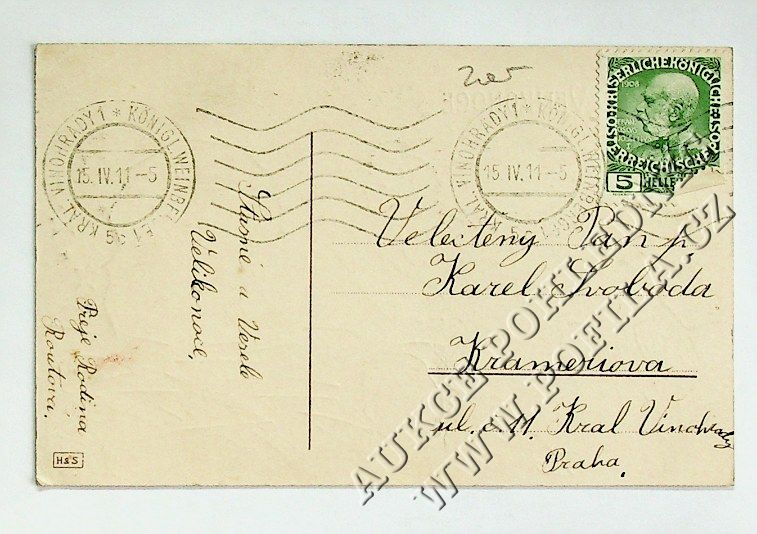 KRÁL. VINOHRADY 1 * KÖNIGL. WEINBERGE 1
15. IV. 11 - 5
5c
KRÁL. VINOHRADY 1 * KÖNIGL. WEINBERGE
15. IV. 11 - 5
KAISERLICHE KÖNIGLICHE
ÖSTERREICHISCHE
1908
5
HELLER
Šťastné a Veselé
Velikonoce,
Přeje Rodina
Routova.
Velectěný Pán p.
Karel Svoboda
Krameriova
ul. č. 11. Král Vinohrady
Praha.
H&S
AUKCE POHLEDNIC
WWW.POFILA.CZ